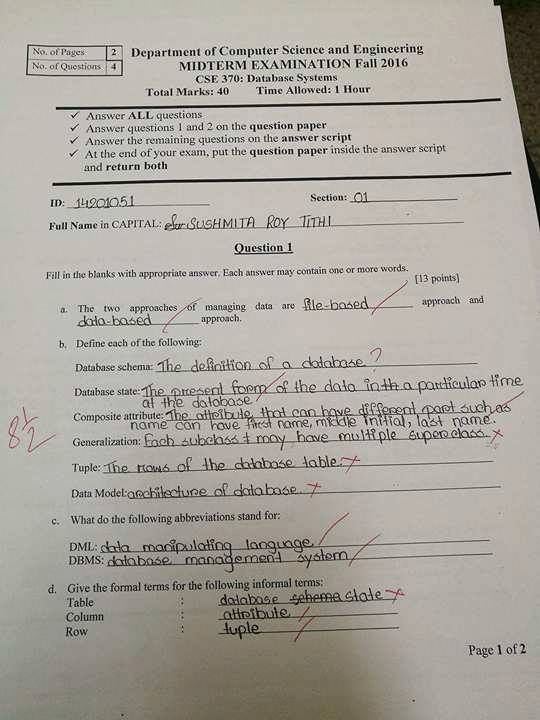 No. of Pages 2
No. of Questions 4
Department of Computer Science and Engineering
MIDTERM EXAMINATION Fall 2016
CSE 370: Database Systems
Total Marks: 40 Time Allowed: 1 Hour
✓ Answer ALL questions
✓ Answer questions 1 and 2 on the question paper
✓ Answer the remaining questions on the answer script
✓ At the end of your exam, put the question paper inside the answer script
and return both
ID: 14201051 Section: 01
Full Name in CAPITAL: SUSHMITA ROY TITHI
Question 1
Fill in the blanks with appropriate answer. Each answer may contain one or more words.
[13 points]
a. The two approaches of managing data are file-based approach and
data-based approach.
b. Define each of the following:
Database schema: The definition of a database ?
Database state: The present form of the data in a particular time
at the database
Composite attribute: The attribute that can have different part such as
name can have first name, middle initial, last name.
8 1/2
Generalization: Each subclass may have multiple superclass.
Tuple: The rows of the database table.
Data Model: architecture of database.
c. What do the following abbreviations stand for:
DML: data manipulating language
DBMS: database management system
d. Give the formal terms for the following informal terms:
Table : database schema state
Column : attribute
Row : tuple
Page 1 of 2